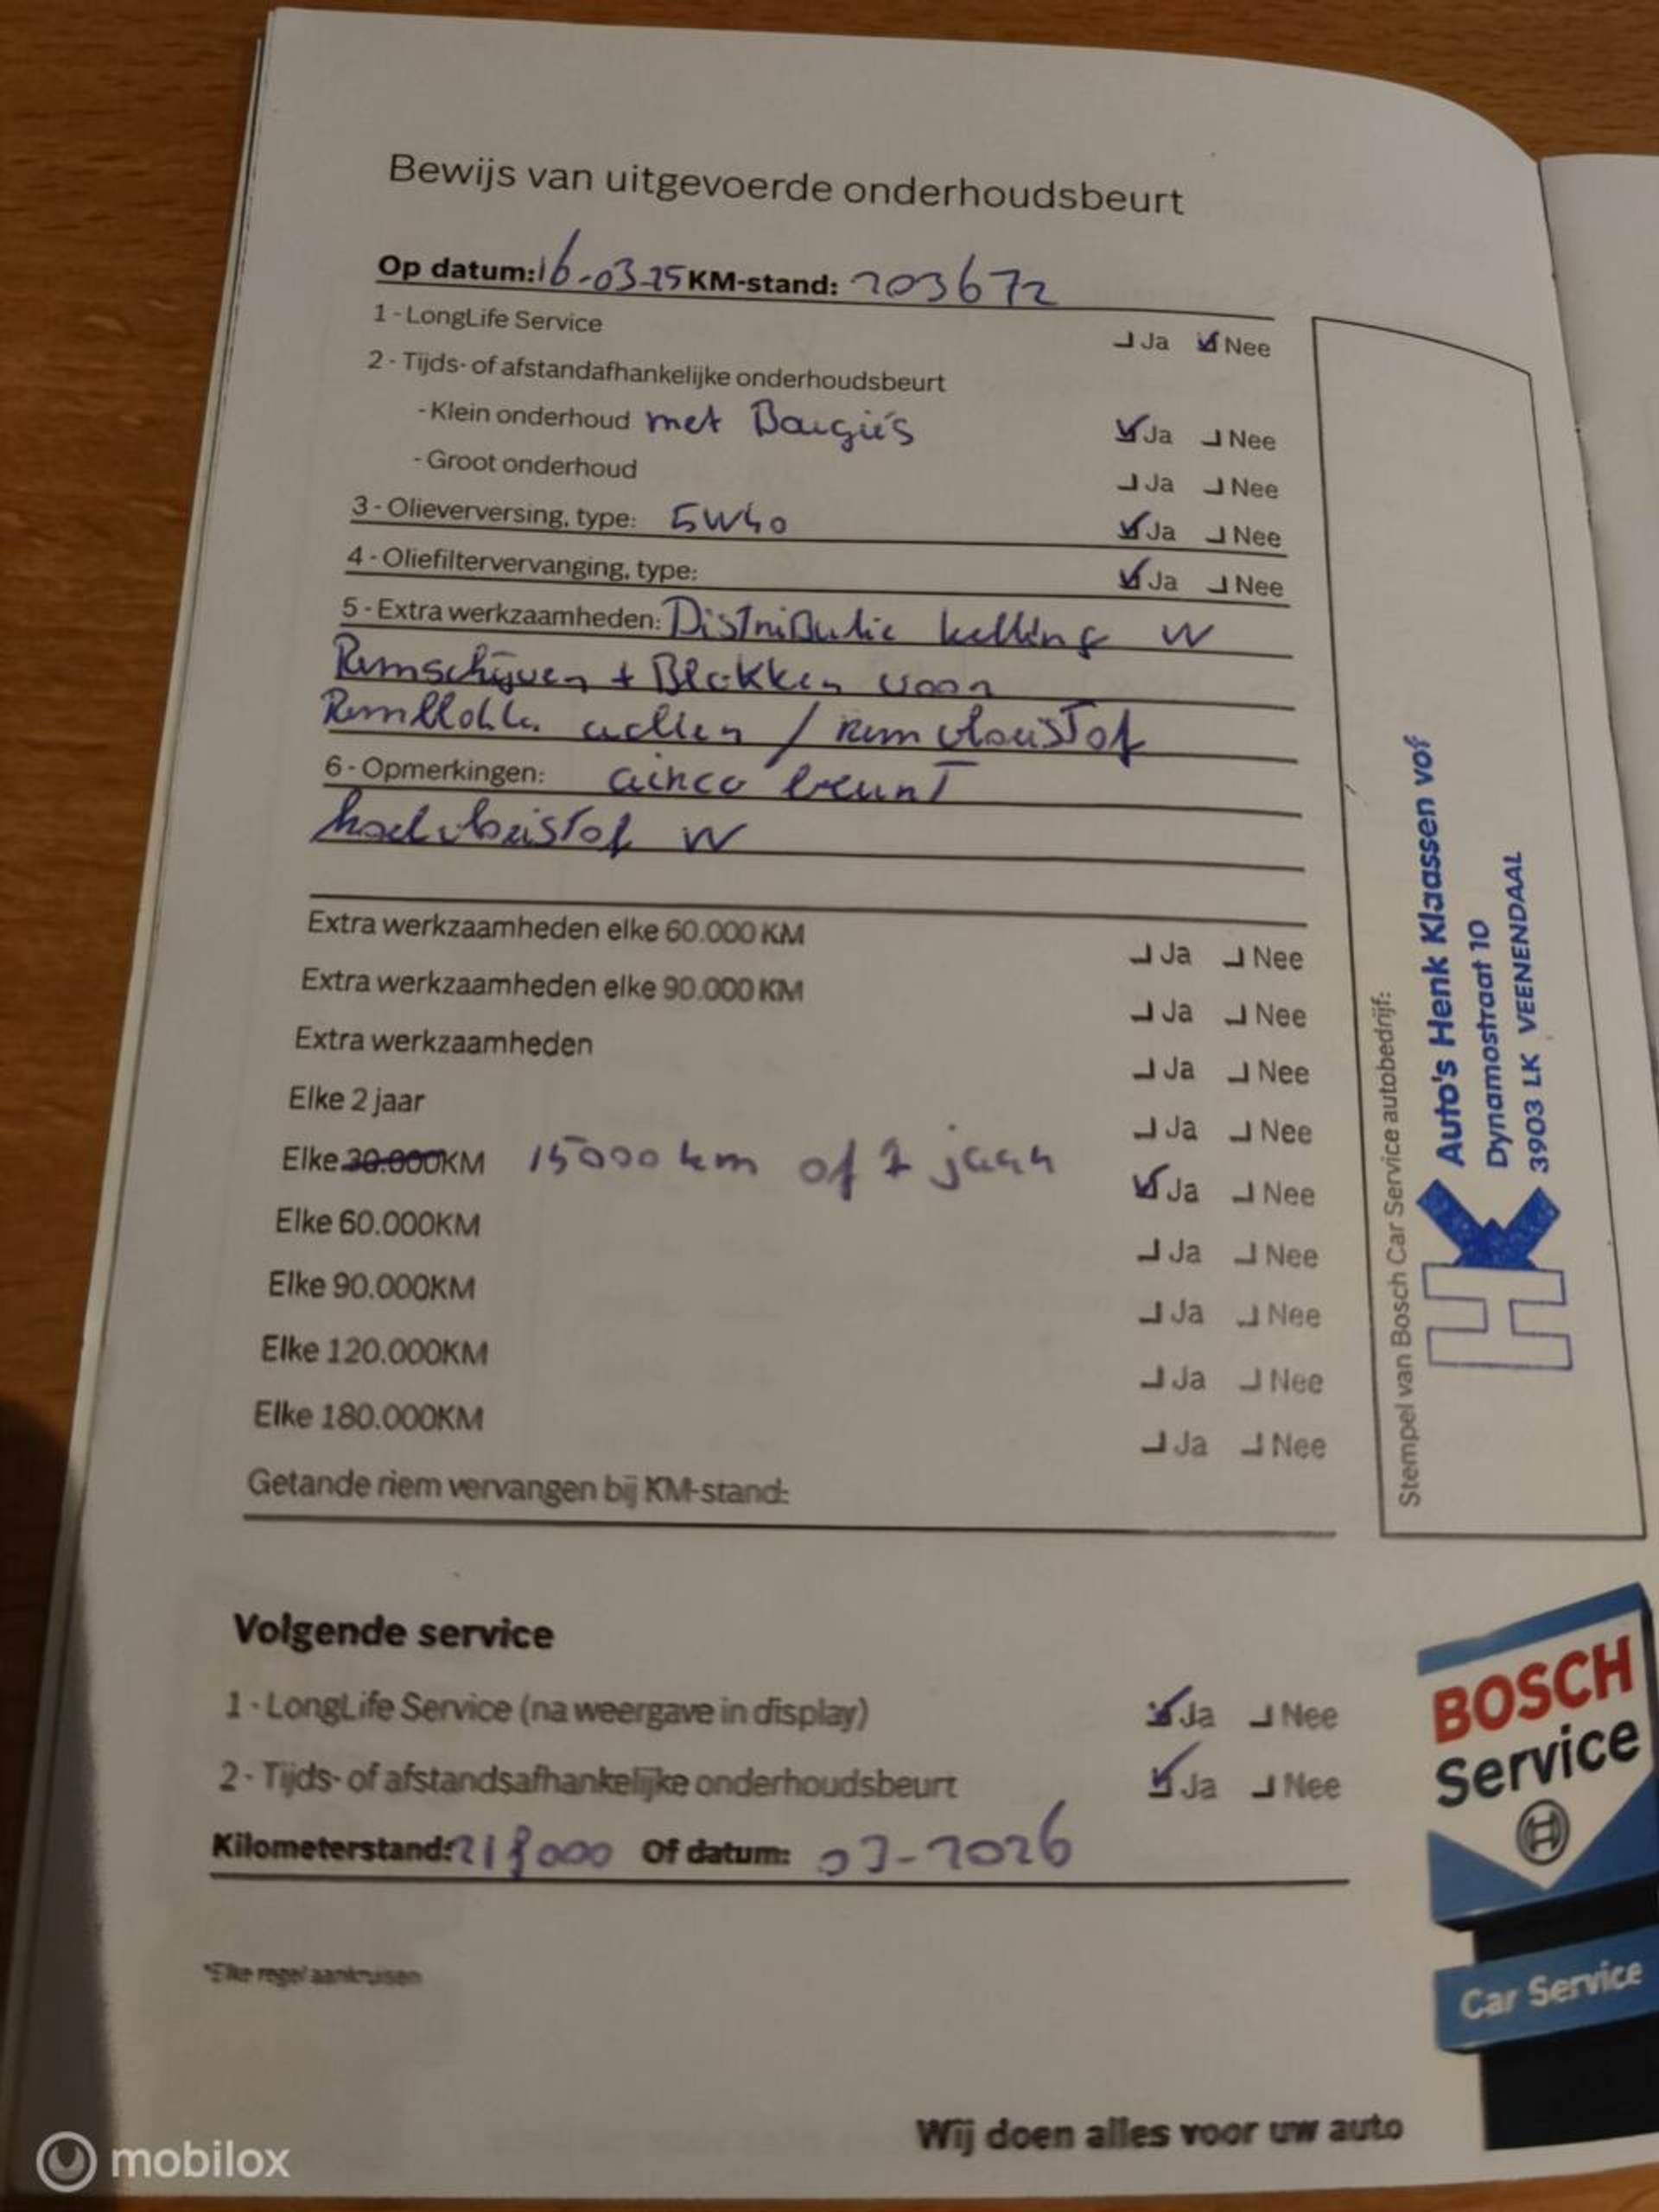 Bewijs van uitgevoerde onderhoudsbeurt
Op datum: 16-03-25 KM-stand: 203672
1 - LongLife Service Ja Nee
2 - Tijds- of afstandafhankelijke onderhoudsbeurt
- Klein onderhoud met Bougiës Ja Nee
- Groot onderhoud Ja Nee
3 - Olieverversing, type: 5W40 Ja Nee
4 - Oliefiltervervanging, type: Ja Nee
5 - Extra werkzaamheden: Distributie ketting W
Remschijven + Blokken voor
Remblokken achter / remvloeistof
6 - Opmerkingen: airco beurt
koelvloeistof W
Extra werkzaamheden elke 60.000 KM Ja Nee
Extra werkzaamheden elke 90.000 KM Ja Nee
Extra werkzaamheden Ja Nee
Elke 2 jaar Ja Nee
Elke 30.000KM 15000 km of 1 jaar Ja Nee
Elke 60.000KM Ja Nee
Elke 90.000KM Ja Nee
Elke 120.000KM Ja Nee
Elke 180.000KM Ja Nee
Getande riem vervangen bij KM-stand:
Stempel van Bosch Car Service autobedrijf:
HK
Auto's Henk Klaassen vof
Dynamostraat 10
3903 LK VEENENDAAL
Volgende service
1 - LongLife Service (na weergave in display) Ja Nee
2 - Tijds- of afstandsafhankelijke onderhoudsbeurt Ja Nee
Kilometerstand: 218000 Of datum: 03-2026
*Elke regel aankruisen
BOSCH
Service
Car Service
Wij doen alles voor uw auto
mobilox